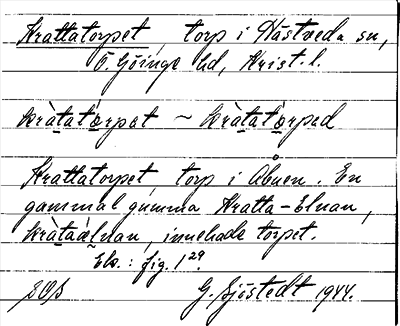 Krattatorpet, torp i Hästveda sn,
Ö. Göinge hd, Krist. l.
kràtatårpat ~ kràtatårped
Krattatorpet torp i Åbuen. En
gammal gumma Kratta-Elnan,
kràtaälnan, innehade torpet.
Ek.: fig. 1 29.
SOS G. Sjöstedt 1944.